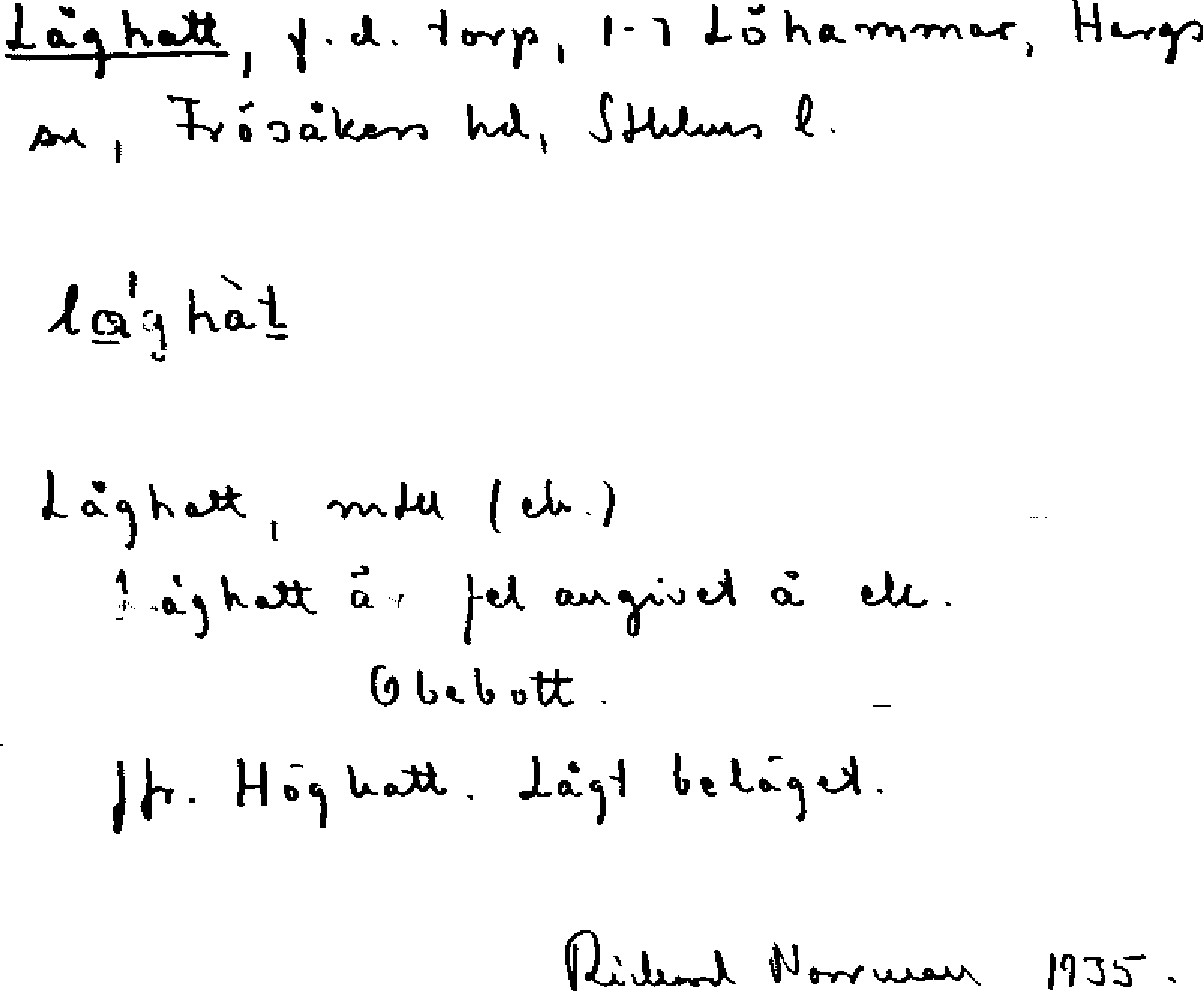 Låghatt, f.d. torp, 1-7 Löhammar, Hargs
sn, Frösåkers hd, Sthlms l.
lå'ghàt
Låghatt, mtu (ek.)
Låghatt är fel angivet å ek.
Obebott.
Jfr. Höghatt. Lågt beläget.
Rickard Norrman 1935.